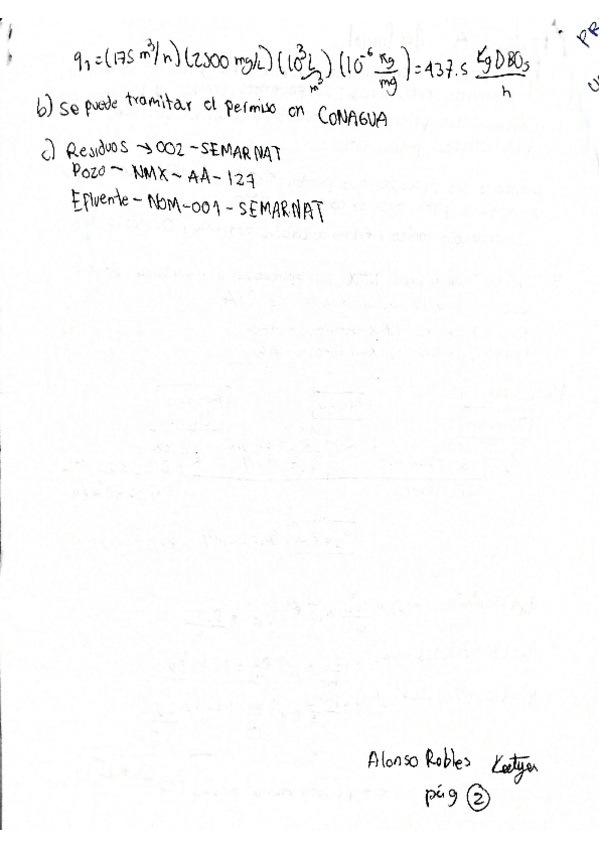 PR
q₁ = (175 m³/h) (2500 mg/L) (10³ L/m³) (10⁻⁶ Kg/mg) = 437.5 Kg DBO₅/h
b) Se puede tramitar el permiso en CONAGUA
c) Residuos → 002 - SEMARNAT
Pozo - NMX - AA - 127
Efluente - NOM-001 - SEMARNAT
Alonso Robles
pág 2